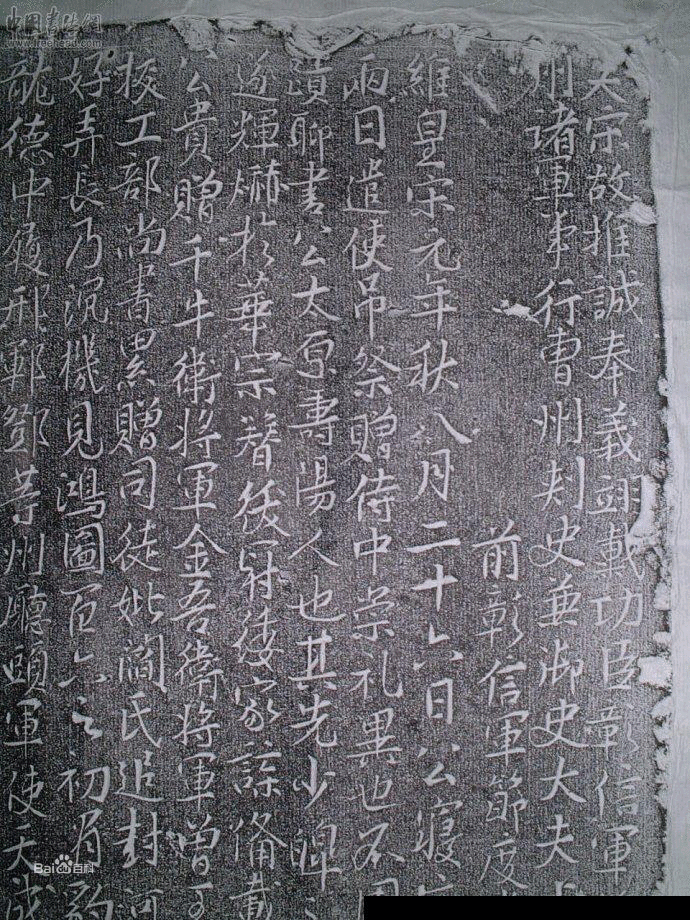 大宋故推誠奉義翊戴功臣彰信軍
州諸軍事行曹州刺史兼御史大夫
前彰信軍節度
維皇宋元年秋八月二十六日公寢
兩日遣使吊祭贈侍中崇礼異也不
頊聊書公太原壽陽人也其先少暤
遠輝爀於華宗簪紱冠緌家諜備載
公貴贈千牛衛將軍金吾衛將軍曾
撿工部尚書累贈司徒妣閻氏追封河
好弄長乃沉機見鴻圖百六之初有豹
龍德中履邢鄆鄧等州廳頭軍使天成
中国书法网
www.freehead.com
Bai百科